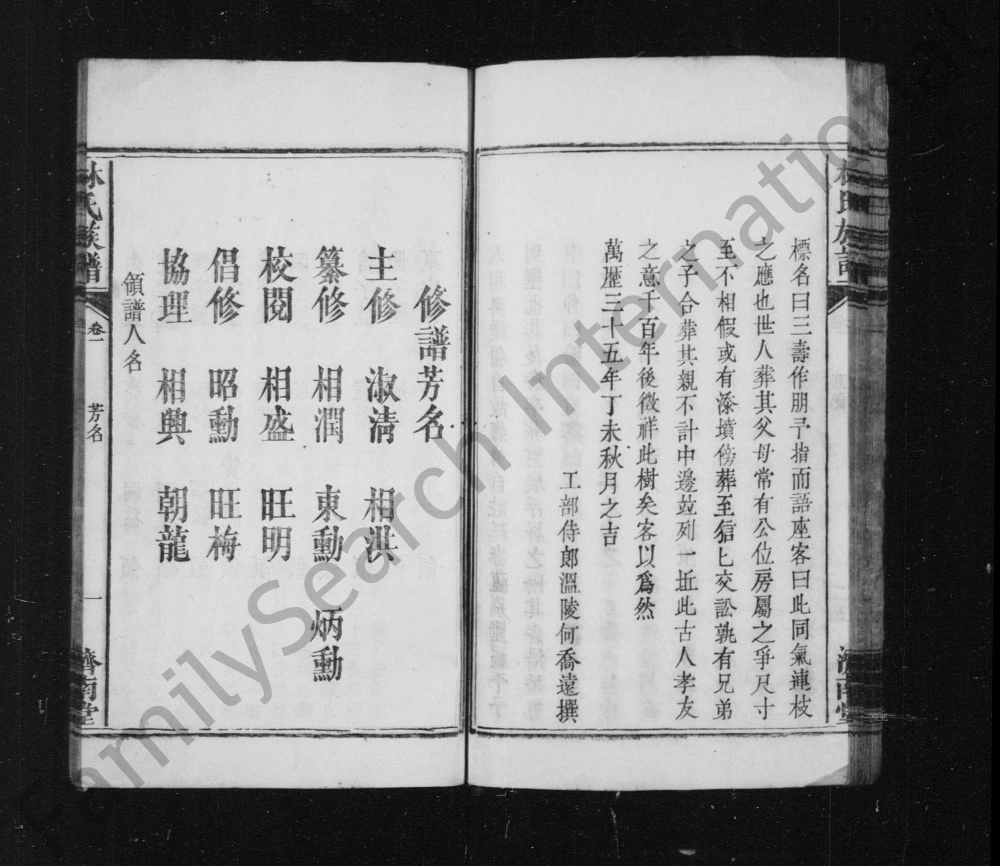 標名曰三壽作朋予指而語座客曰此同氣連枝
之應也世人葬其父母常有公位房屬之爭尺寸
至不相假或有添墳傍葬至狺匕交訟孰有兄弟
之子合葬其親不計中邊竝列一坵此古人孝友
之意千百年後徵祥此樹矣客以爲然
萬歷三十五年丁未秋月之吉
工部侍郎溫陵何喬遠撰
修譜芳名
主修 淑清 相洪
纂修 相潤 東勳 炳勳
校閱 相盛 旺明
倡修 昭勳 旺梅
協理 相興 朝龍
領譜人名
林氏族譜 卷一 芳名 一 濟南堂
FamilySearch International